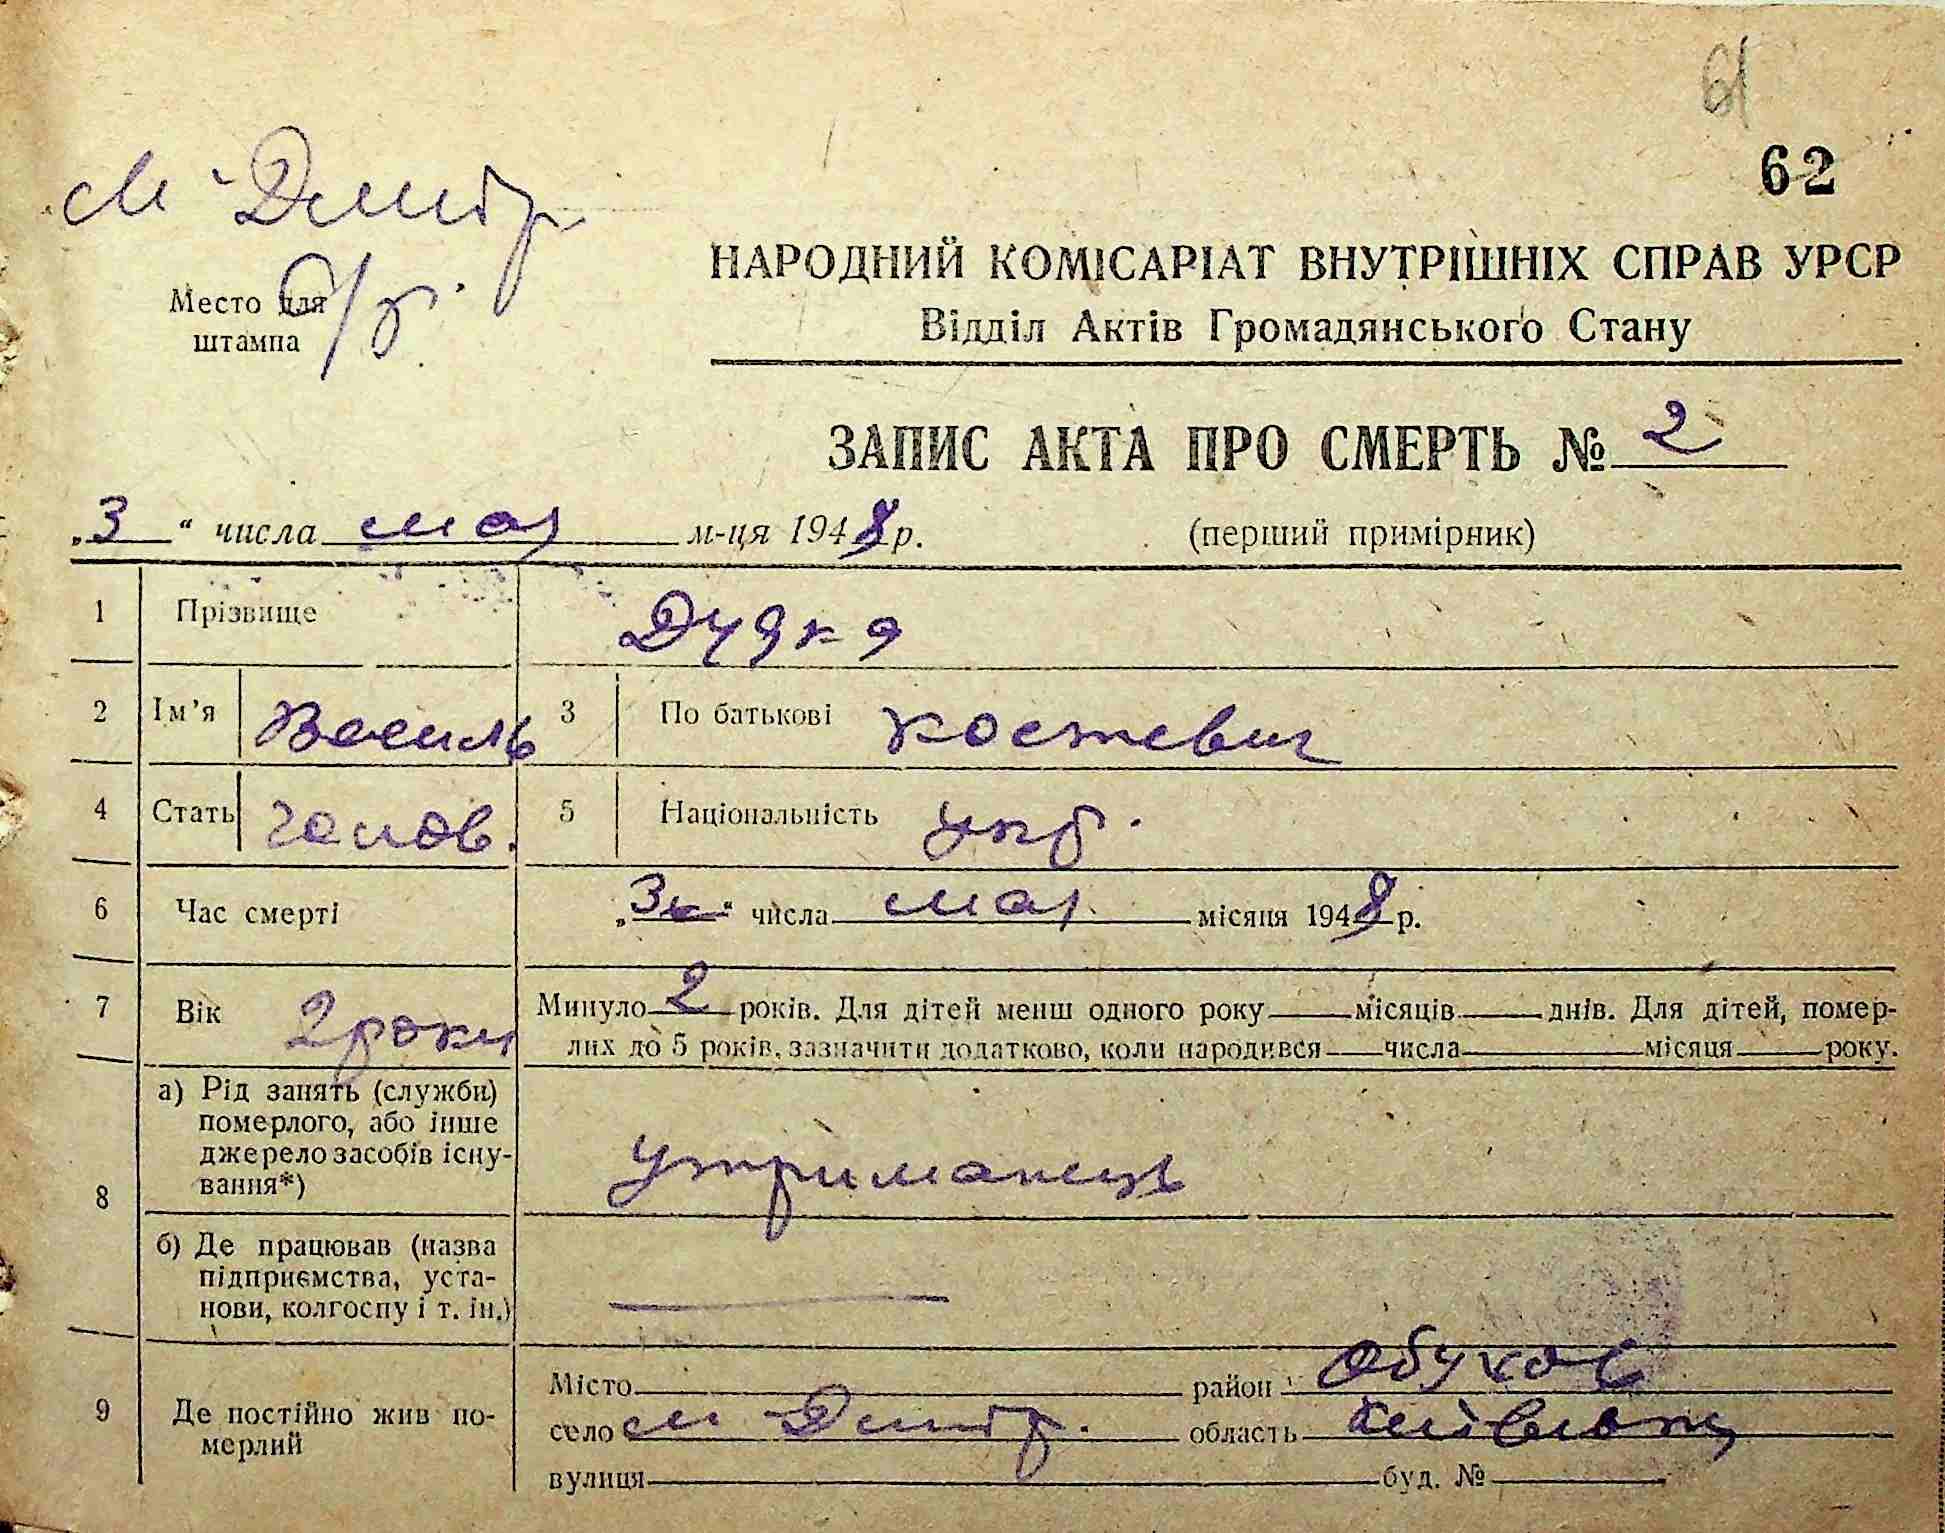 61
62
М-Дмитр.
с/р.
Место для
штампа
НАРОДНИЙ КОМІСАРІАТ ВНУТРІШНІХ СПРАВ УРСР
Відділ Актів Громадянського Стану
ЗАПИС АКТА ПРО СМЕРТЬ № 2
„3“ числа мая м-ця 1948 р. (перший примірник)
1 Прізвище Дудка
2 Ім’я Василь 3 По батькові Костевич
4 Стать чолов. 5 Національність укр.
6 Час смерті „3“ числа мая місяця 1948 р.
7 Вік 2 роки Минуло 2 років. Для дітей менш одного року місяців днів. Для дітей, помер-
лих до 5 років, зазначити додатково, коли народився числа місяця року.
8 а) Рід занять (служби)
померлого, або інше
джерело засобів існу-
вання*) утриманець
б) Де працював (назва
підприємства, уста-
нови, колгоспу і т. ін.)
9 Де постійно жив по-
мерлий
Місто район Обухов
село М-Дмитр. область
вулиця буд. №